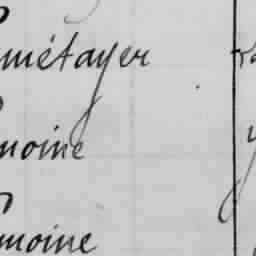 métayer
moine
moine